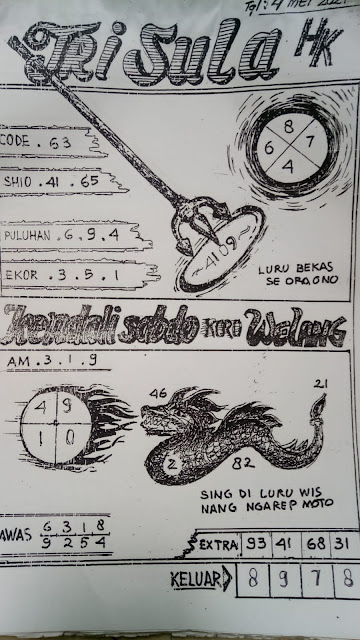 Tgl: 4 MEI
Tri Sula HK
CODE . 63
SHIO . 41 . 65
PULUHAN . 6 . 9 . 4
EKOR . 3 . 5 . 1
8
6 7
4
~ 4109 ~
LURU BEKAS
SE ORO, ONO
Kendali sabdo KORO Welang
AM . 3 . 1 . 9
4 9
1 0
46
21
2
82
SING DI LURU WIS
NANG NGAREP MOTO
AWAS 6 3 1 8
9 2 5 4
EXTRA 93 41 68 31
KELUAR 8 9 7 8